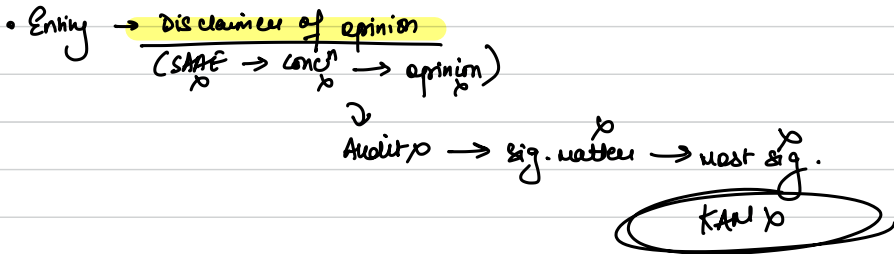 • Entity → Disclaimer of opinion
(SAAE → concⁿ → opinion)
Audit → sig. matter → most sig.
KAM